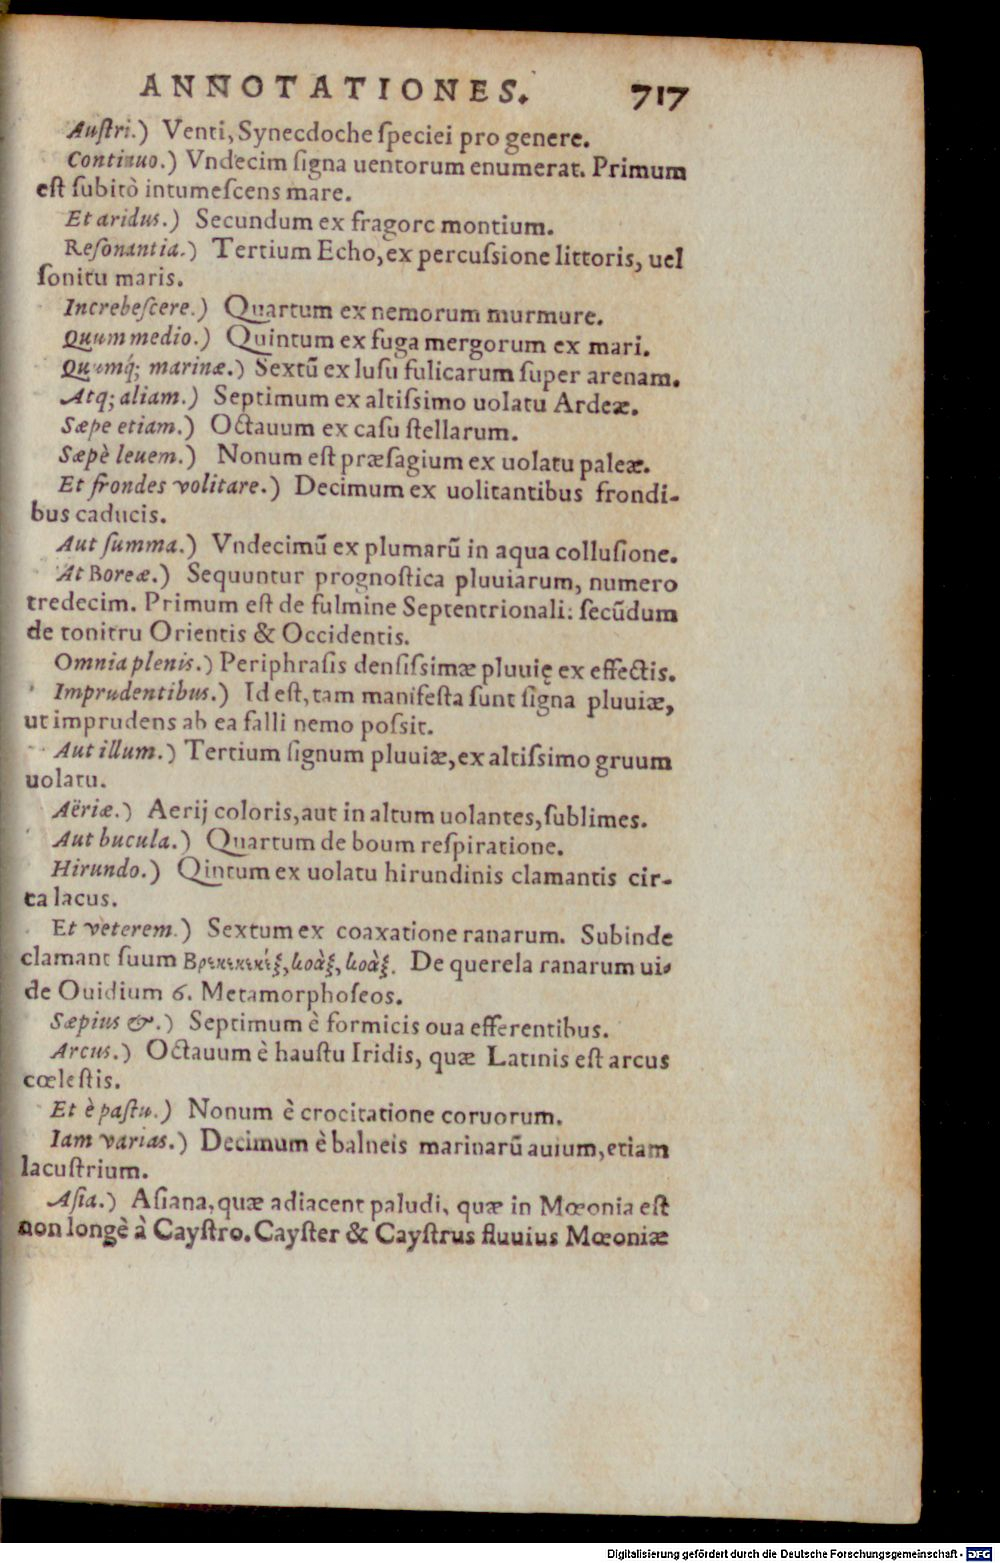 ANNOTATIONES. 717
Auſtri.) Venti, Synecdoche ſpeciei pro genere.
Continuo.) Vndecim ſigna uentorum enumerat. Primum
eſt ſubitò intumeſcens mare.
Et aridus.) Secundum ex fragore montium.
Reſonantia.) Tertium Echo, ex percuſsione littoris, uel
ſonitu maris.
Increbeſcere.) Quartum ex nemorum murmure.
Quum medio.) Quintum ex fuga mergorum ex mari.
Quumq́; marinæ.) Sextũ ex luſu fulicarum ſuper arenam.
Atq; aliam.) Septimum ex altiſsimo uolatu Ardeæ.
Sæpe etiam.) Octauum ex caſu ſtellarum.
Sæpè leuem.) Nonum eſt præſagium ex uolatu paleæ.
Et frondes volitare.) Decimum ex uolitantibus frondi-
bus caducis.
Aut ſumma.) Vndecimũ ex plumarũ in aqua colluſione.
At Boreæ.) Sequuntur prognoſtica pluuiarum, numero
tredecim. Primum eſt de fulmine Septentrionali: ſecũdum
de tonitru Orientis & Occidentis.
Omnia plenis.) Periphraſis denſiſsimæ pluuię ex effectis.
Imprudentibus.) Id eſt, tam manifeſta ſunt ſigna pluuiæ,
ut imprudens ab ea falli nemo poſsit.
Aut illum.) Tertium ſignum pluuiæ, ex altiſsimo gruum
uolatu.
Aëriæ.) Aerij coloris, aut in altum uolantes, ſublimes.
Aut bucula.) Quartum de boum reſpiratione.
Hirundo.) Qintum ex uolatu hirundinis clamantis cir-
ca lacus.
Et veterem.) Sextum ex coaxatione ranarum. Subinde
clamant ſuum Βρεκεκεκὲξ, κοὰξ, κοὰξ. De querela ranarum ui-
de Ouidium 6. Metamorphoſeos.
Sæpius &.) Septimum è formicis oua efferentibus.
Arcus.) Octauum è hauſtu Iridis, quæ Latinis eſt arcus
cœleſtis.
Et è paſtu.) Nonum è crocitatione coruorum.
Iam varias.) Decimum è balneis marinarũ auium, etiam
lacuſtrium.
Aſia.) Aſiana, quæ adiacent paludi, quæ in Mœonia eſt
non longè à Cayſtro. Cayſter & Cayſtrus fluuius Mœoniæ
Digitalisierung gefördert durch die Deutsche Forschungsgemeinschaft - DFG